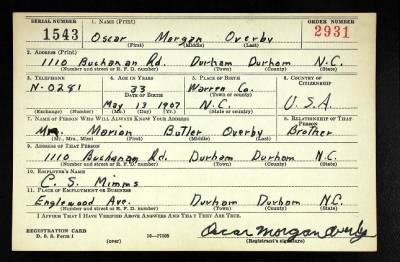 SERIAL NUMBER 1. NAME (Print) ORDER NUMBER
1543 Oscar Morgan Overby 2931
(First) (Middle) (Last)
2. ADDRESS (Print)
1110 Buchanan Rd. Durham Durham N.C.
(Number and street or R. F. D. number) (Town) (County) (State)
3. TELEPHONE 4. AGE IN YEARS 5. PLACE OF BIRTH 6. COUNTRY OF CITIZENSHIP
N-0281 33 Warren Co.
DATE OF BIRTH (Town or county)
May 13 1907 N.C. U.S.A.
(Exchange) (Number) (Mo.) (Day) (Yr.) (State or country)
7. NAME OF PERSON WHO WILL ALWAYS KNOW YOUR ADDRESS 8. RELATIONSHIP OF THAT PERSON
Mr. Marion Butler Overby Brother
(Mr., Mrs., Miss) (First) (Middle) (Last)
9. ADDRESS OF THAT PERSON
1110 Buchanan Rd. Durham Durham N.C.
(Number and street or R. F. D. number) (Town) (County) (State)
10. EMPLOYER'S NAME
C. S. Mimms
11. PLACE OF EMPLOYMENT OR BUSINESS
Englewood Ave. Durham Durham N.C.
(Number and street or R. F. D. number) (Town) (County) (State)
I AFFIRM THAT I HAVE VERIFIED ABOVE ANSWERS AND THAT THEY ARE TRUE.
Oscar Morgan Overby
REGISTRATION CARD
D. S. S. Form 1 (over) 16—17105 (Registrant's signature)